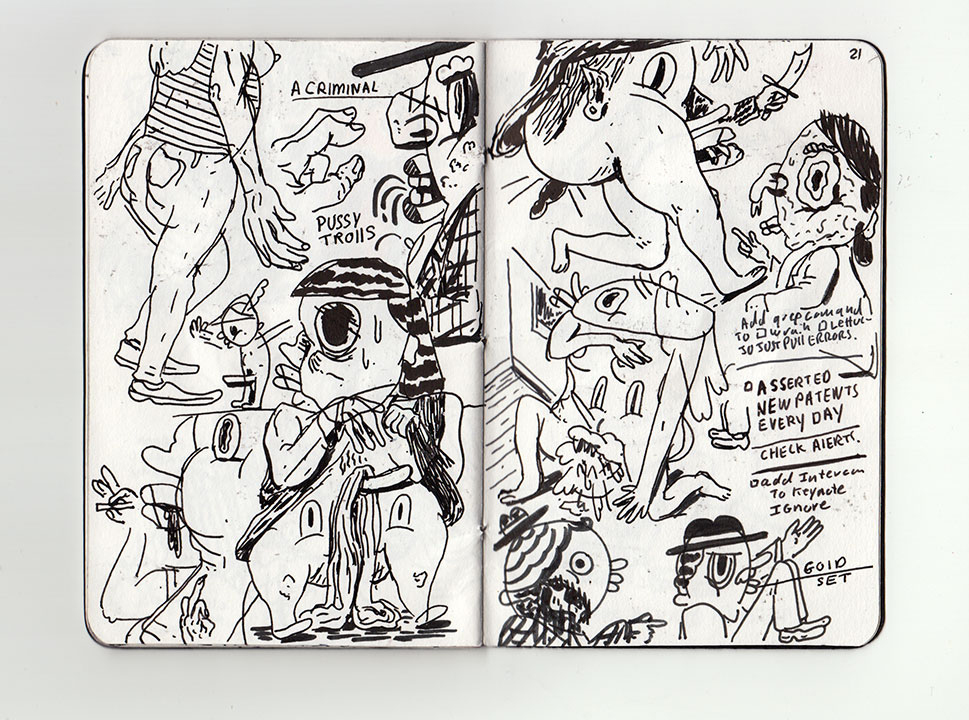 A CRIMINAL
PUSSY
TROLLS
21
Add grep command
TO
SO JUST PULL ERRORS.
ASSERTED
NEW PATENTS
EVERY DAY
CHECK ALERTS.
add Intercom
To Keynote
IGNORE
GOLD
SET